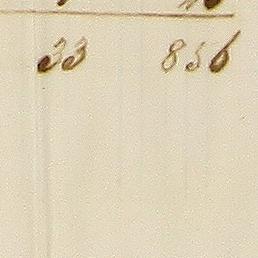 33 856